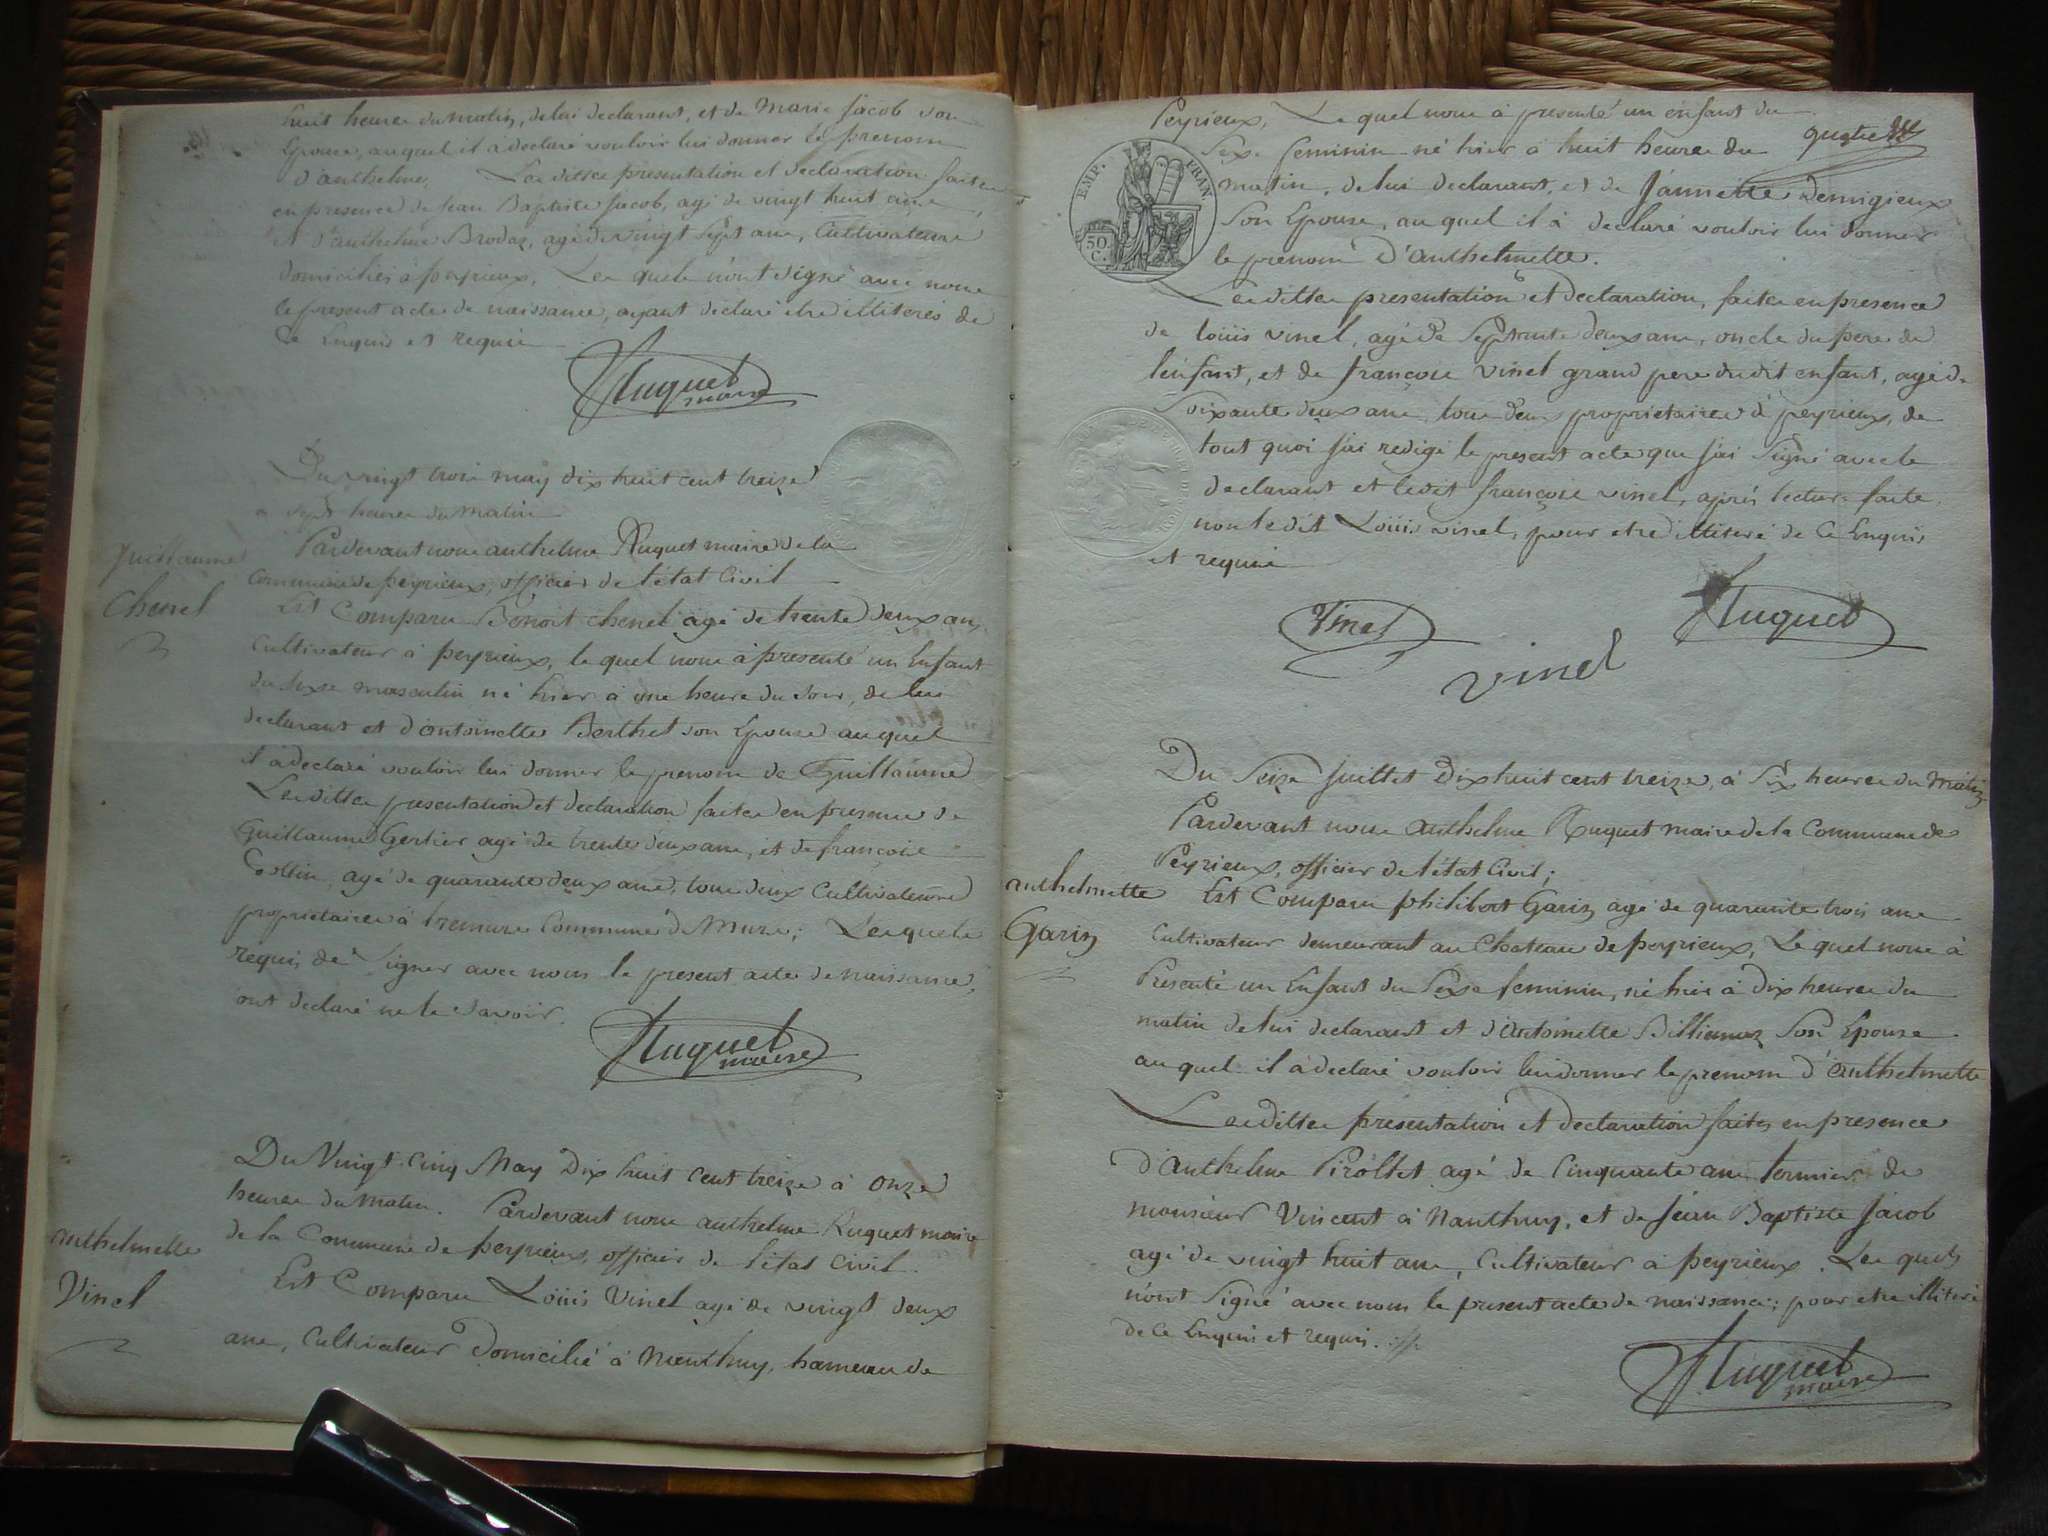 huit heures du matin, de lui declarant, et de Marie Jacob son
Epouse, auquel il a declaré vouloir lui donner le prenom
d'anthelme. Les dittes presentation et declaration faites
en presence de Jean Baptiste Jacob, agé de vingt huit ans
et d'anthelme Brodaz, agé de vingt sept ans, Cultivateurs
domiciliés à peyrieux, Les quels n'ont signé avec nous
le present acte de naissance, ayant declaré etre illiterés de
Ce Enquis et requis
Huguet
maire
Du vingt trois may dix huit cent treize
a sept heures du matin
Pardevant nous anthelme Huguet maire de la
Commune de peyrieux, officier de l'état Civil
Guillaume
Chenel
Est Comparu Benoit Chenel agé de trente deux ans,
Cultivateur à peyrieux, le quel nous à presenté un Enfant
du sexe masculin né hier à une heure du soir, de lui
declarant et d'antoinette Berthet son Epouse au quel
il à declaré vouloir lui donner le prenom de Guillaume
Les dittes presentation et declaration faites en presence de
Guillaume Gerlier agé de trente deux ans, et de françois
agé de quarante deux ans, tous deux Cultivateurs
proprietaires à Commune de Mure; Lesquels
requis de signer avec nous le present acte de naissance,
ont declaré ne le savoir.
Huguet
maire
Du Vingt-Cinq May Dix huit cent treize à onze
heures du matin. Pardevant nous anthelme Huguet maire
de la Commune de peyrieux, officier de l'état Civil.
anthelmette
Vinel
Est Comparu Loüis Vinel agé de vingt deux
ans, Cultivateur Domicilié à Nanthuy, hameau de
Peyrieux, Le quel nous à presenté un enfant du
quatre
EMP. FRAN
50.
C.
Sexe feminin né hier à huit heures du
matin, de lui declarant, et de Jannette Demigieux
Son Epouse, au quel il à declaré vouloir lui donner
le prenom d'anthelmette.
Les dittes presentation et declaration, faites en presence
de loüis vinel, agé de Septante deux ans, oncle du pere de
l'enfant, et de françois Vinel grand pere dudit enfant, agé de
Soixante deux ans, tous deux proprietaires à peyrieux, de
tout quoi j'ai redigé le present acte que j'ai Signé avec le
declarant et ledit françois vinel, après lecture faite
non ledit Loüis vinel, pour etre illiteré de Ce Enquis
et requis
Vinel
Huguet
vinel
Du Seize Juillet Dix huit cent treize, à Six heures du matin
Pardevant nous anthelme Huguet maire de la Commune de
Peyrieux, officier de l'état Civil;
anthelmette
Garin
Est Comparu philibert Garin agé de quarante trois ans
Cultivateur demeurant au Chateau de peyrieux, Le quel nous à
Presenté un Enfant du Sexe feminin, né hier à dix heures du
matin de lui declarant et d'antoinette Billiemaz Son Epouse
au quel il à declaré vouloir lui donner le prenom d'anthelmette
Les dittes presentation et declaration faites en presence
d'anthelme Pirollet agé de Cinquante ans fermier de
monsieur Vincent à Nanthuy, et de Jean Baptiste Jacob
agé de vingt huit ans, Cultivateur à peyrieux. Les quels
n'ont Signé avec nous le present acte de naissance; pour etre illiteré
de Ce Enquis et requis.
Huguet
maire